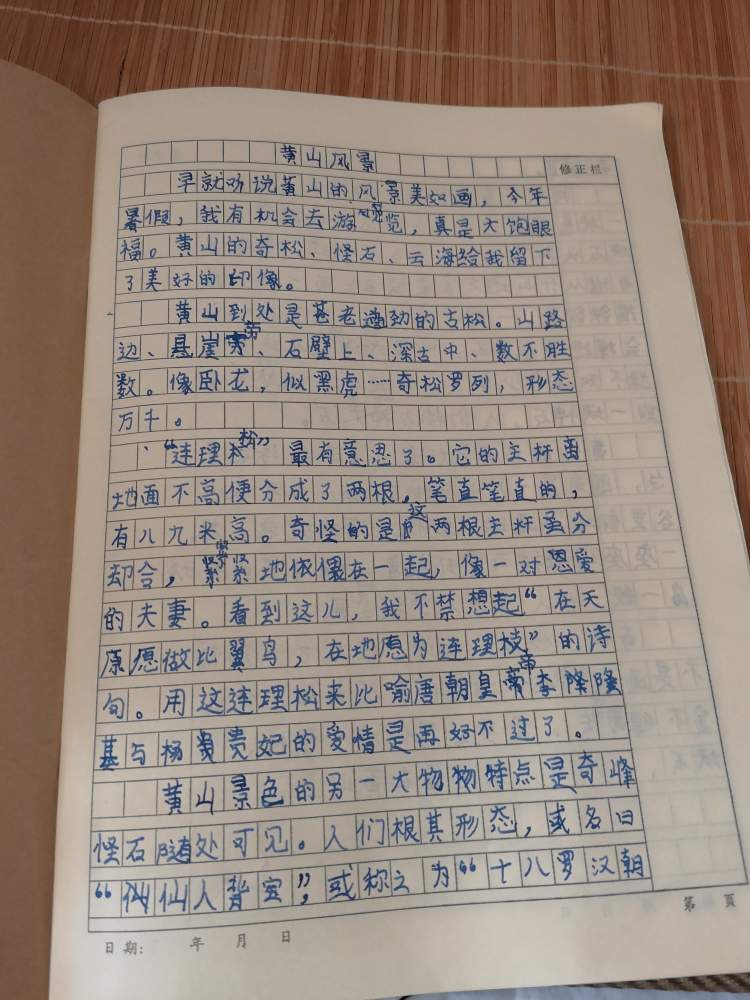 黄山风景
修正栏
早就听说黄山的风景美如画，今年
暑假，我有机会去游览，真是大饱眼
福。黄山的奇松、怪石、云海给我留下
了美好的印像。
黄山到处是苍老遒劲的古松。山路
边、悬崖旁、石壁上、深古中、数不胜
数。像卧龙，似黑虎……奇松罗列，形态
万千。
“连理松”最有意思了。它的主杆离
地面不高便分成了两根，笔直笔直的，
有八九米高。奇怪的是这两根主杆虽分
却合，紧紧地依偎在一起，像一对恩爱
的夫妻。看到这儿，我不禁想起“在天
原愿做比翼鸟，在地愿为连理枝”的诗
句。用这连理松来比喻唐朝皇帝李隆隆
基与杨贵妃的爱情是再好不过了。
黄山景色的另一大物物特点是奇峰
怪石随处可见。人们根其形态，或名曰
“仙仙人背宝”，或称之为“十八罗汉朝
日期: 年 月 日
第 頁